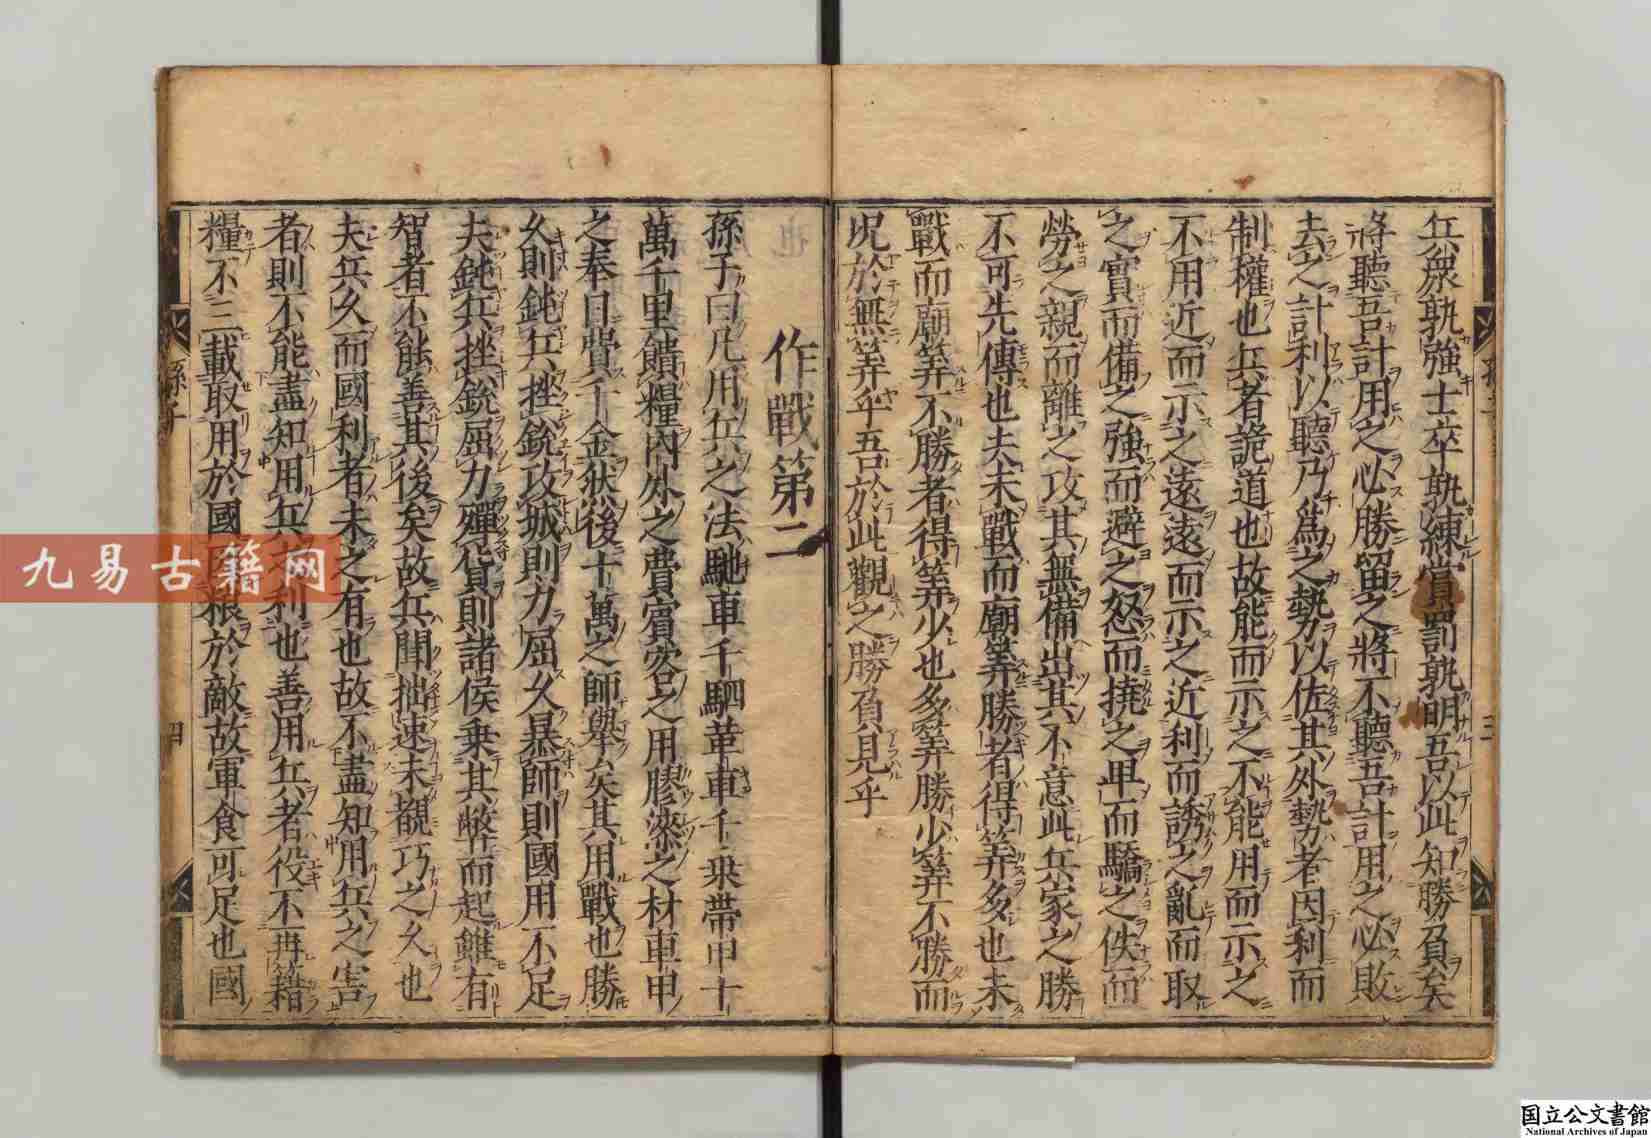 兵衆孰強士卒孰練賞罰孰明吾以此知勝負矣
將聽吾計用之必勝留之將不聽吾計用之必敗
去之計利以聽乃爲之勢以佐其外勢者因利而
制權也兵者詭道也故能而示之不能用而示之
不用近而示之遠遠而示之近利而誘之亂而取
之實而備之強而避之怒而撓之卑而驕之佚而
勞之親而離之攻其無備出其不意此兵家之勝
不可先傳也夫未戰而廟筭勝者得筭多也未
戰而廟筭不勝者得筭少也多筭勝少筭不勝而
況於無筭乎吾於此觀之勝負見乎
作戰第二
孫子曰凡用兵之法馳車千駟革車千乘帶甲十
萬千里饋糧内外之費賓客之用膠漆之材車甲
之奉日費千金然後十萬之師舉矣其用戰也勝
久則鈍兵挫銳攻城則力屈久暴師則國用不足
夫鈍兵挫銳屈力殫貨則諸侯乗其弊而起雖有
智者不能善其後矣故兵聞拙速未覩巧之久也
夫兵久而國利者未之有也故不盡知用兵之害
者則不能盡知用兵之利也善用兵者役不再籍
糧不三載取用於國因糧於敵故軍食可足也國
孫子
三
孫子
四
九易古籍网
国立公文書館
National Archives of Japan